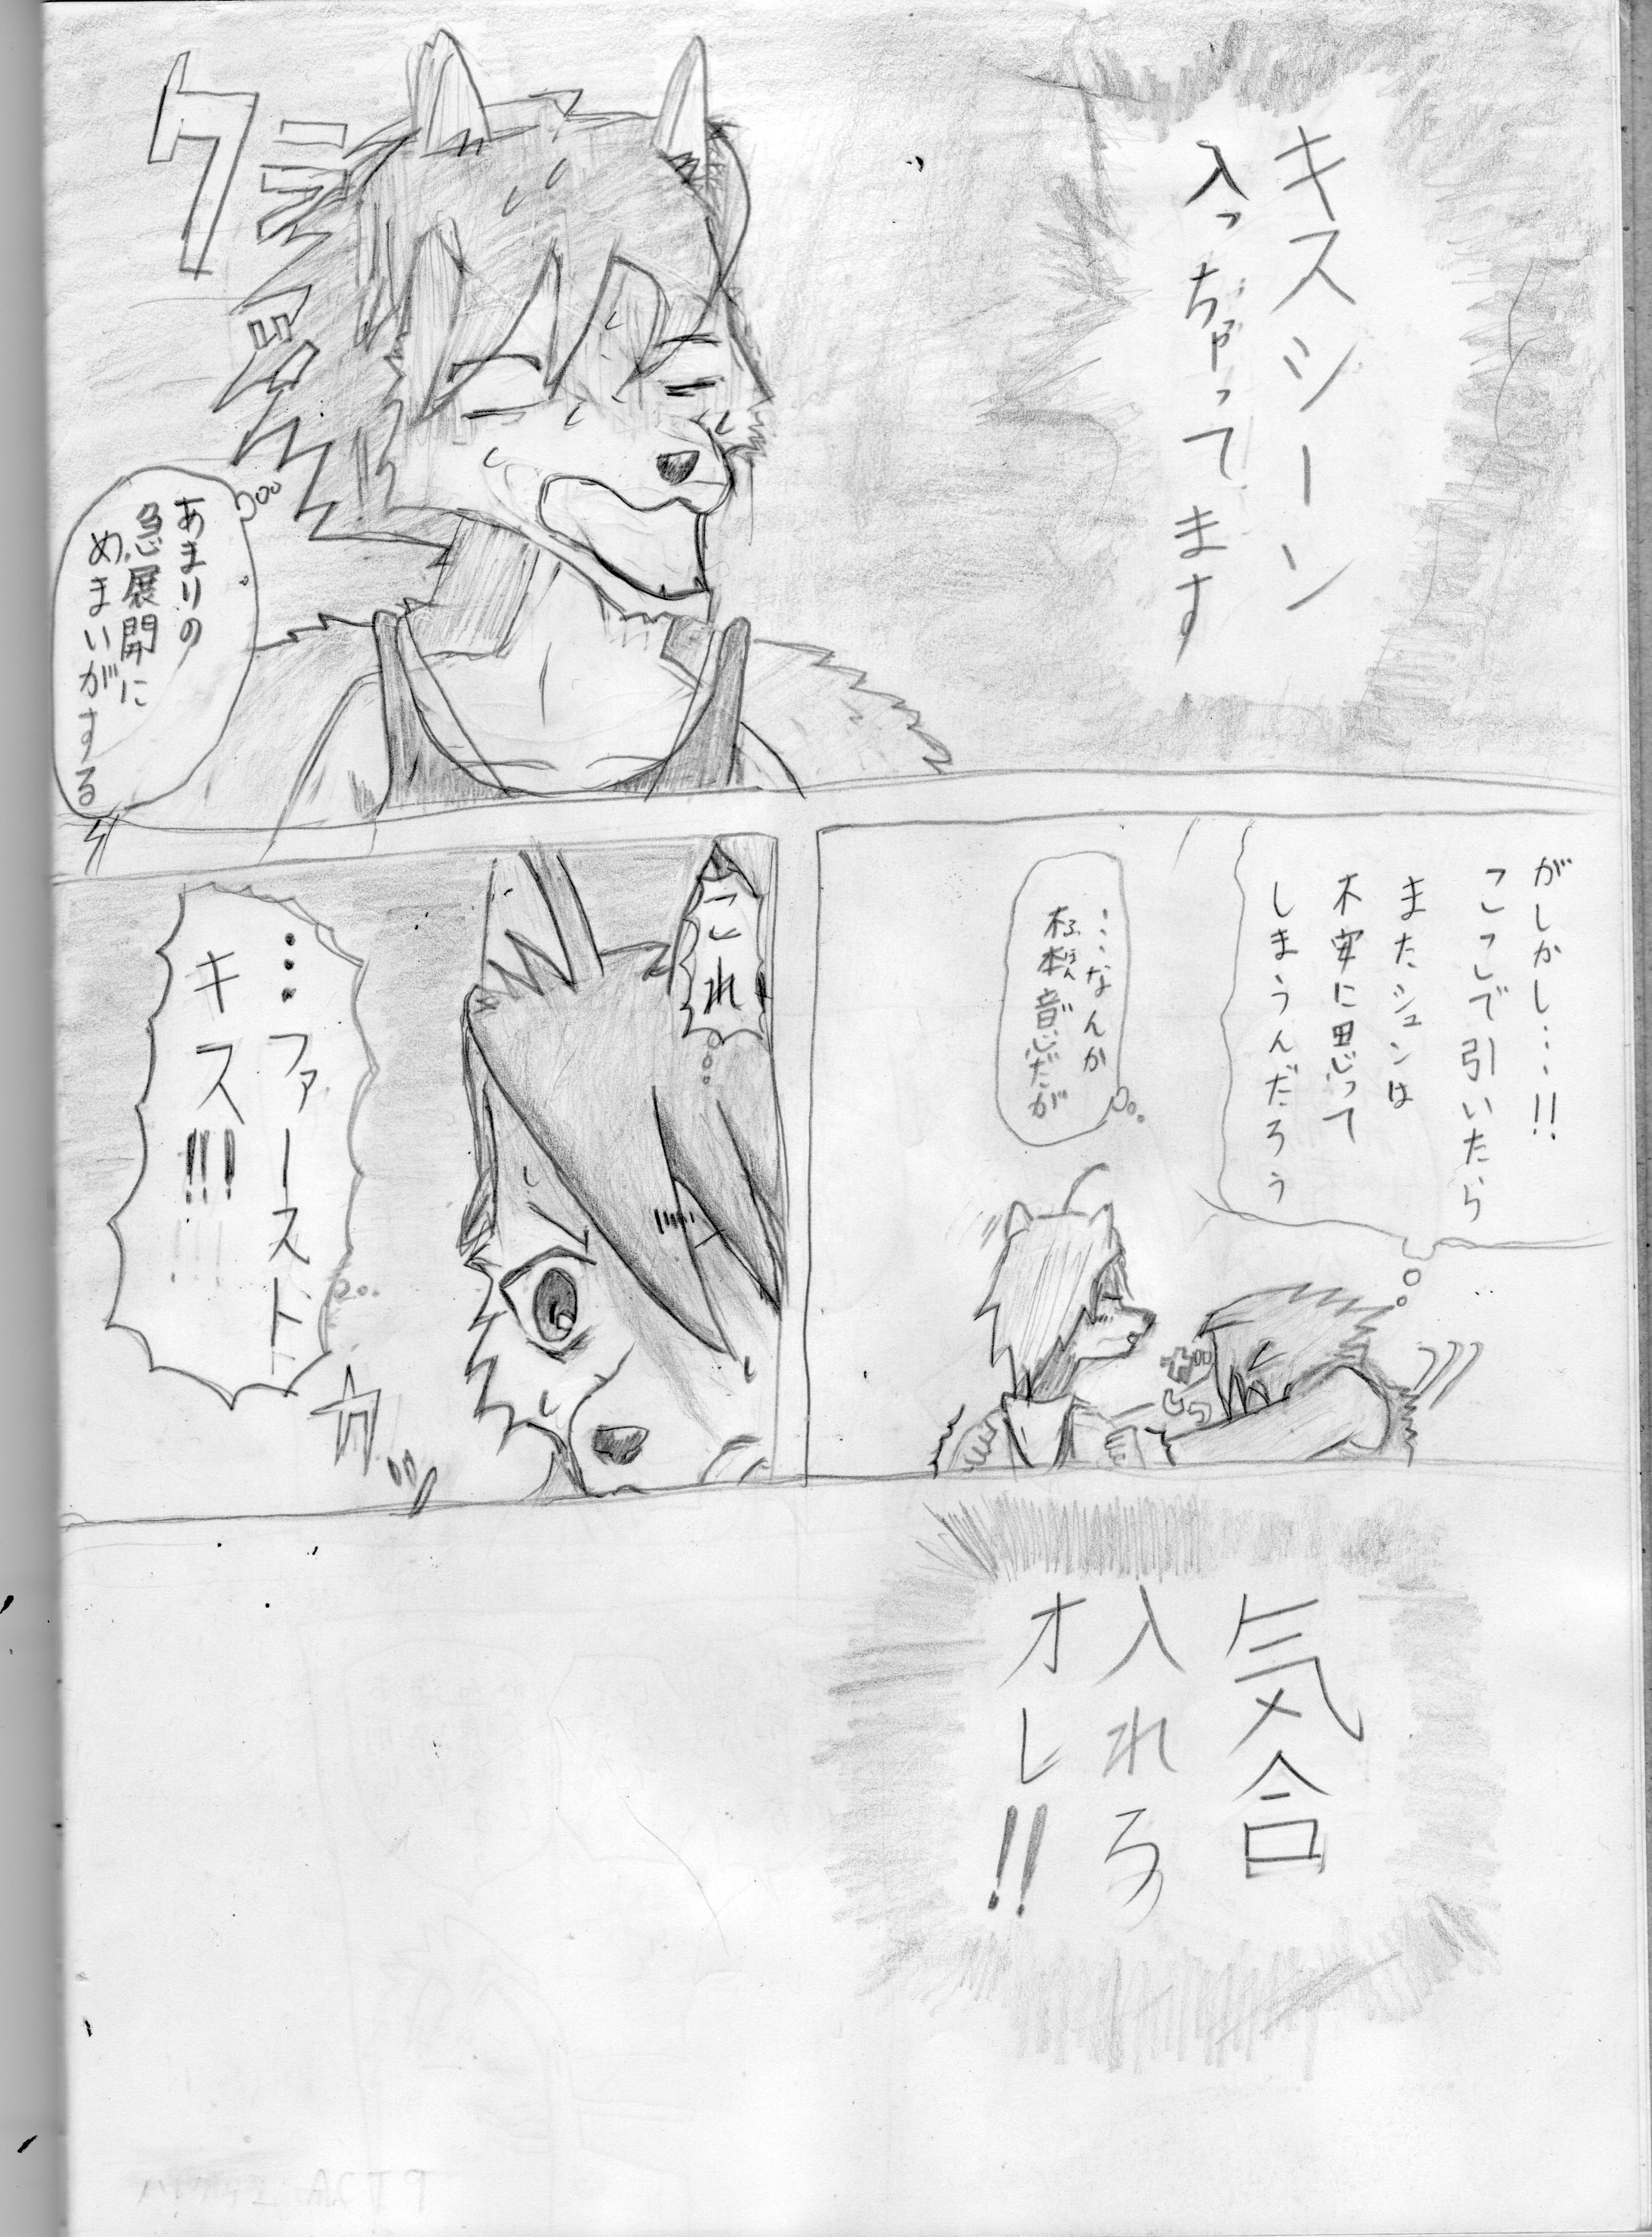 キスシーン
入っちゃってます
クラッ
あまりの
急展開に
めまいがする
がしかし…!!
ここで引いたら
またシュンは
不安に思って
しまうんだろう
…なんか
ふほん
不本意だが
これ
…ファースト
キス!!!
カッ
気合
入れろ
オレ!!